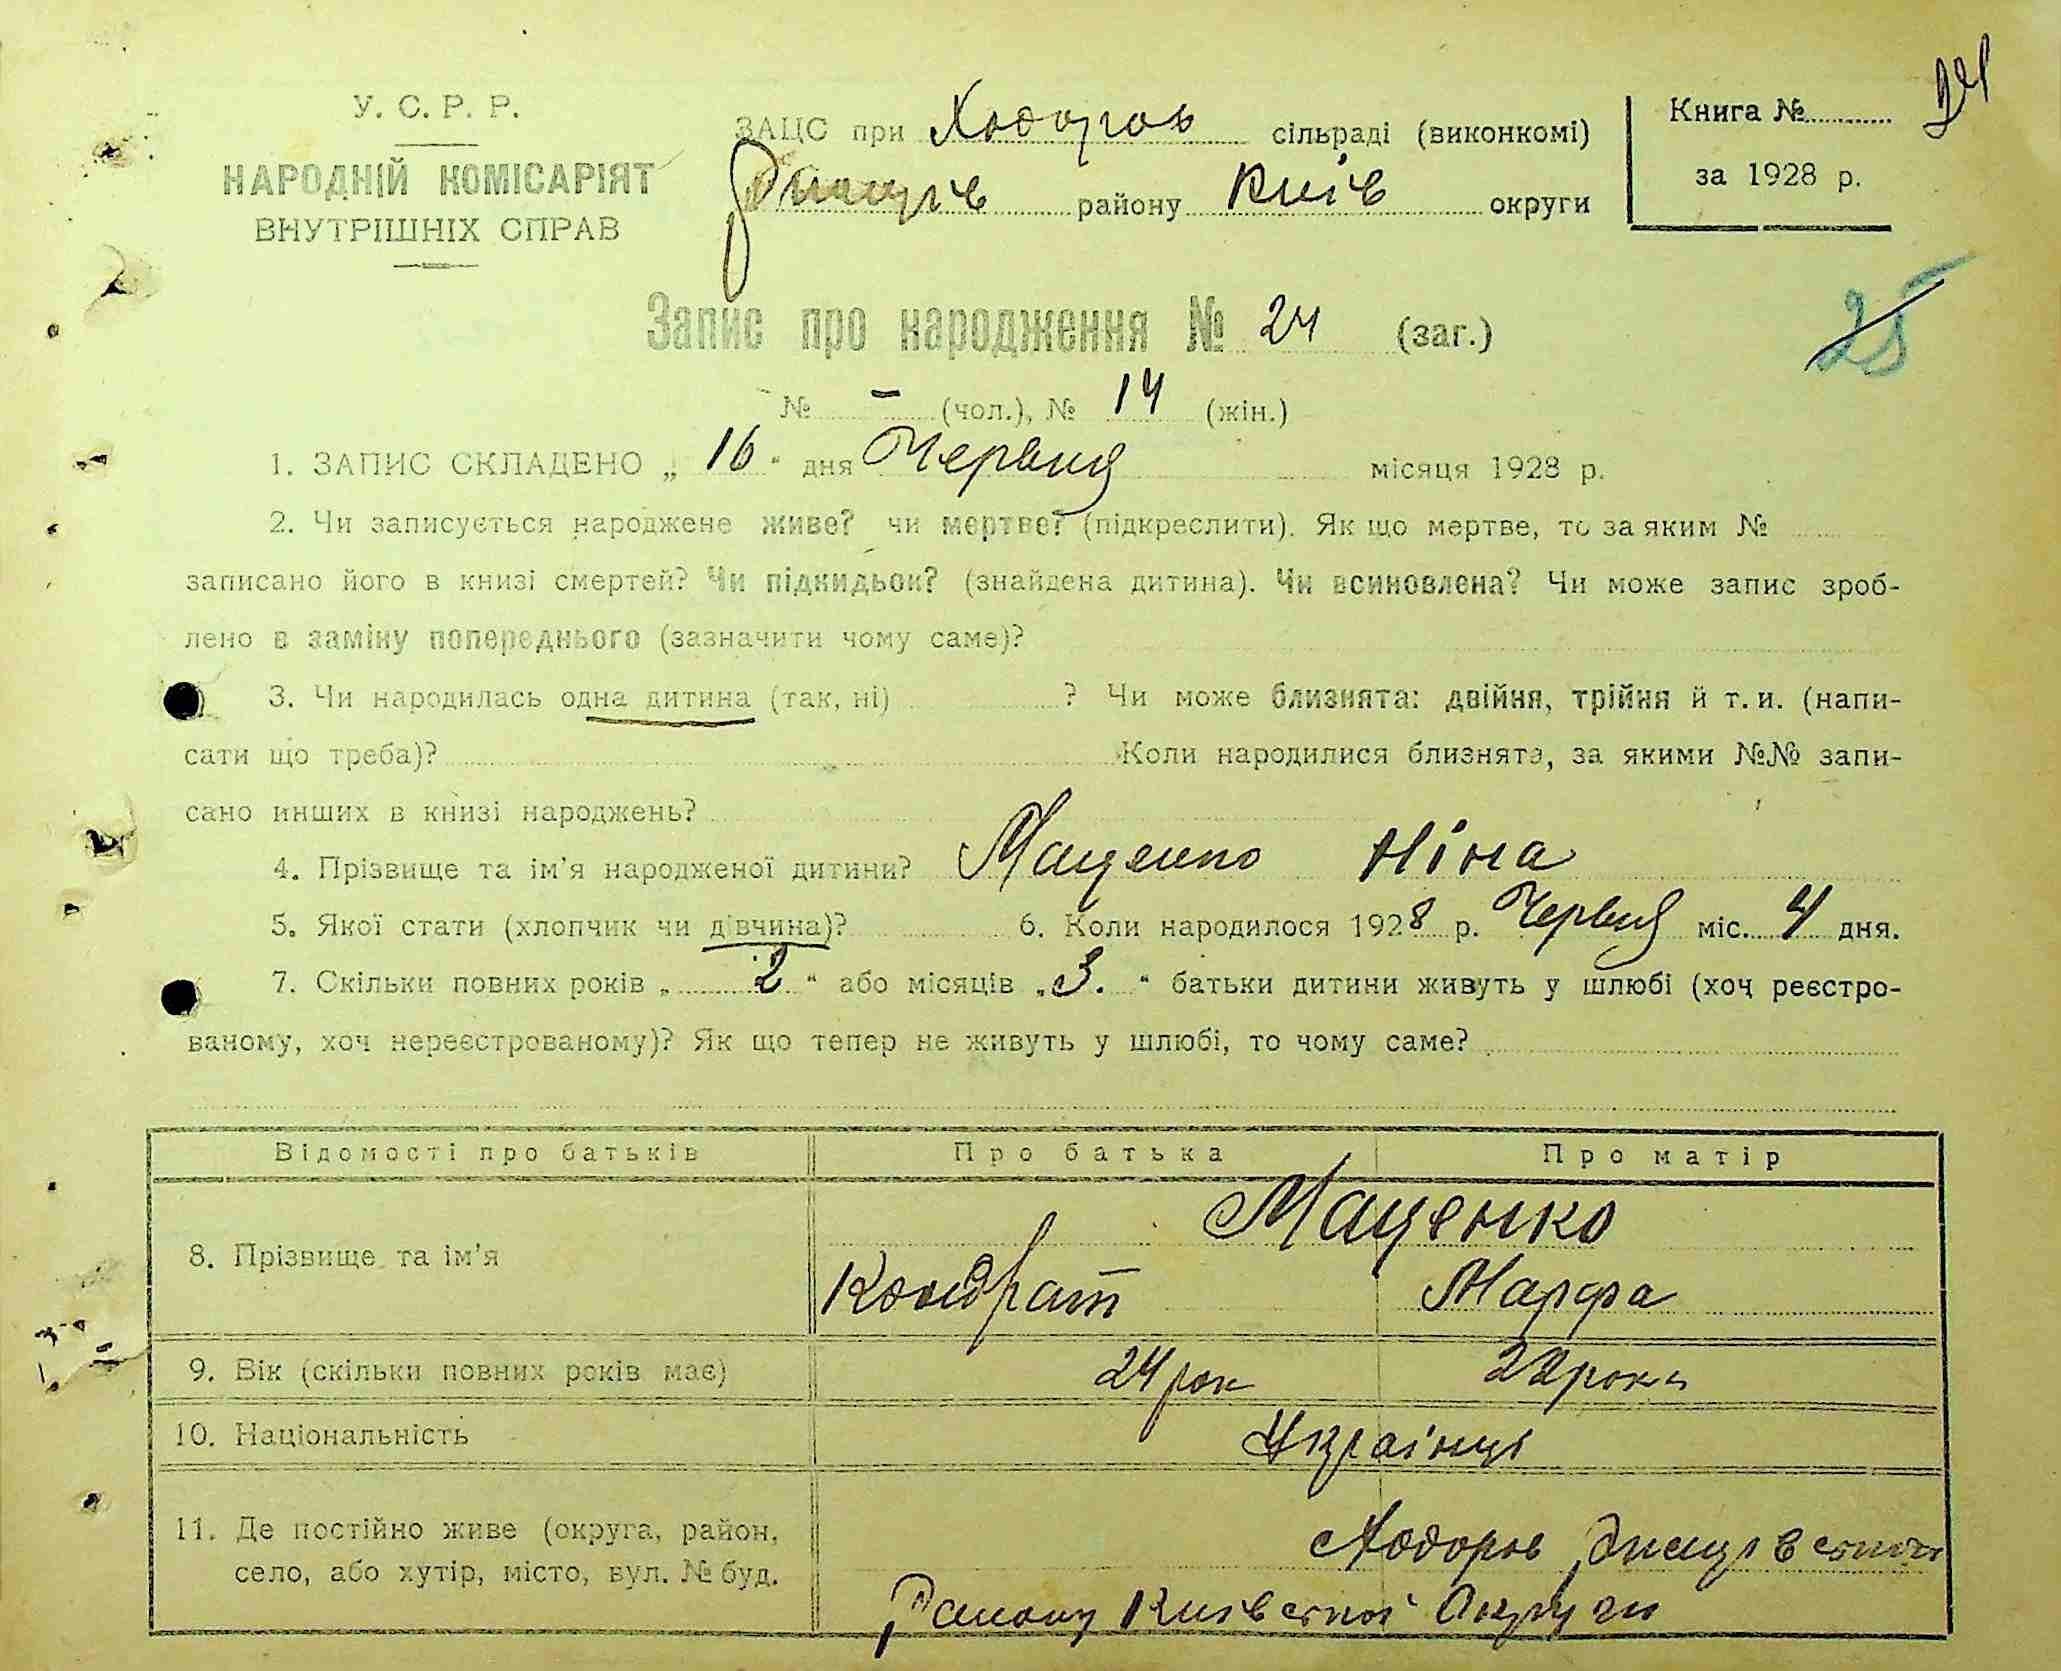 24
У. С. Р. Р.
НАРОДНІЙ КОМІСАРІЯТ
ВНУТРІШНІХ СПРАВ
ЗАЦС при Ходоров сільраді (виконкомі)
Ржищів району Київ округи
Книга №
за 1928 р.
25
Запис про народження № 24 (заг.)
№ - (чол.), № 14 (жін.)
1. ЗАПИС СКЛАДЕНО „ 16 " дня Червня місяця 1928 р.
2. Чи записується народжене живе? чи мертве? (підкреслити). Як що мертве, то за яким №
записано його в книзі смертей? Чи підкидьок? (знайдена дитина). Чи всиновлена? Чи може запис зроб-
лено в заміну попереднього (зазначити чому саме)?
3. Чи народилась одна дитина (так, ні) ? Чи може близнята: двійня, трійня й т. и. (напи-
сати що треба)? Коли народилися близнята, за якими №№ запи-
сано инших в книзі народжень?
4. Прізвище та ім'я народженої дитини? Маценко Ніна
5. Якої стати (хлопчик чи дівчина)? 6. Коли народилося 1928 р. Червня міс. 4 дня.
7. Скільки повних років „ 2 " або місяців „ 3. " батьки дитини живуть у шлюбі (хоч реєстро-
ваному, хоч нереєстрованому)? Як що тепер не живуть у шлюбі, то чому саме?
Відомості про батьків Про батька Про матір
Маценко
8. Прізвище та ім'я Кондрат Марфа
9. Вік (скільки повних років має) 24 рок 22 роки
10. Національність Українці
11. Де постійно живе (округа, район,
село, або хутір, місто, вул. № буд. Ходоров
Району Київської Округи